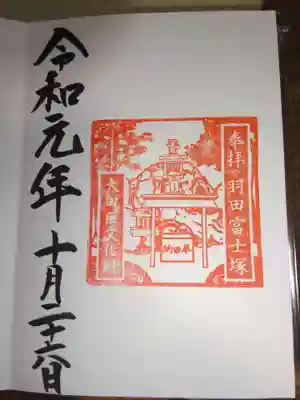 奉拝 羽田富士塚
大田区文化財
令和元年十月二十六日